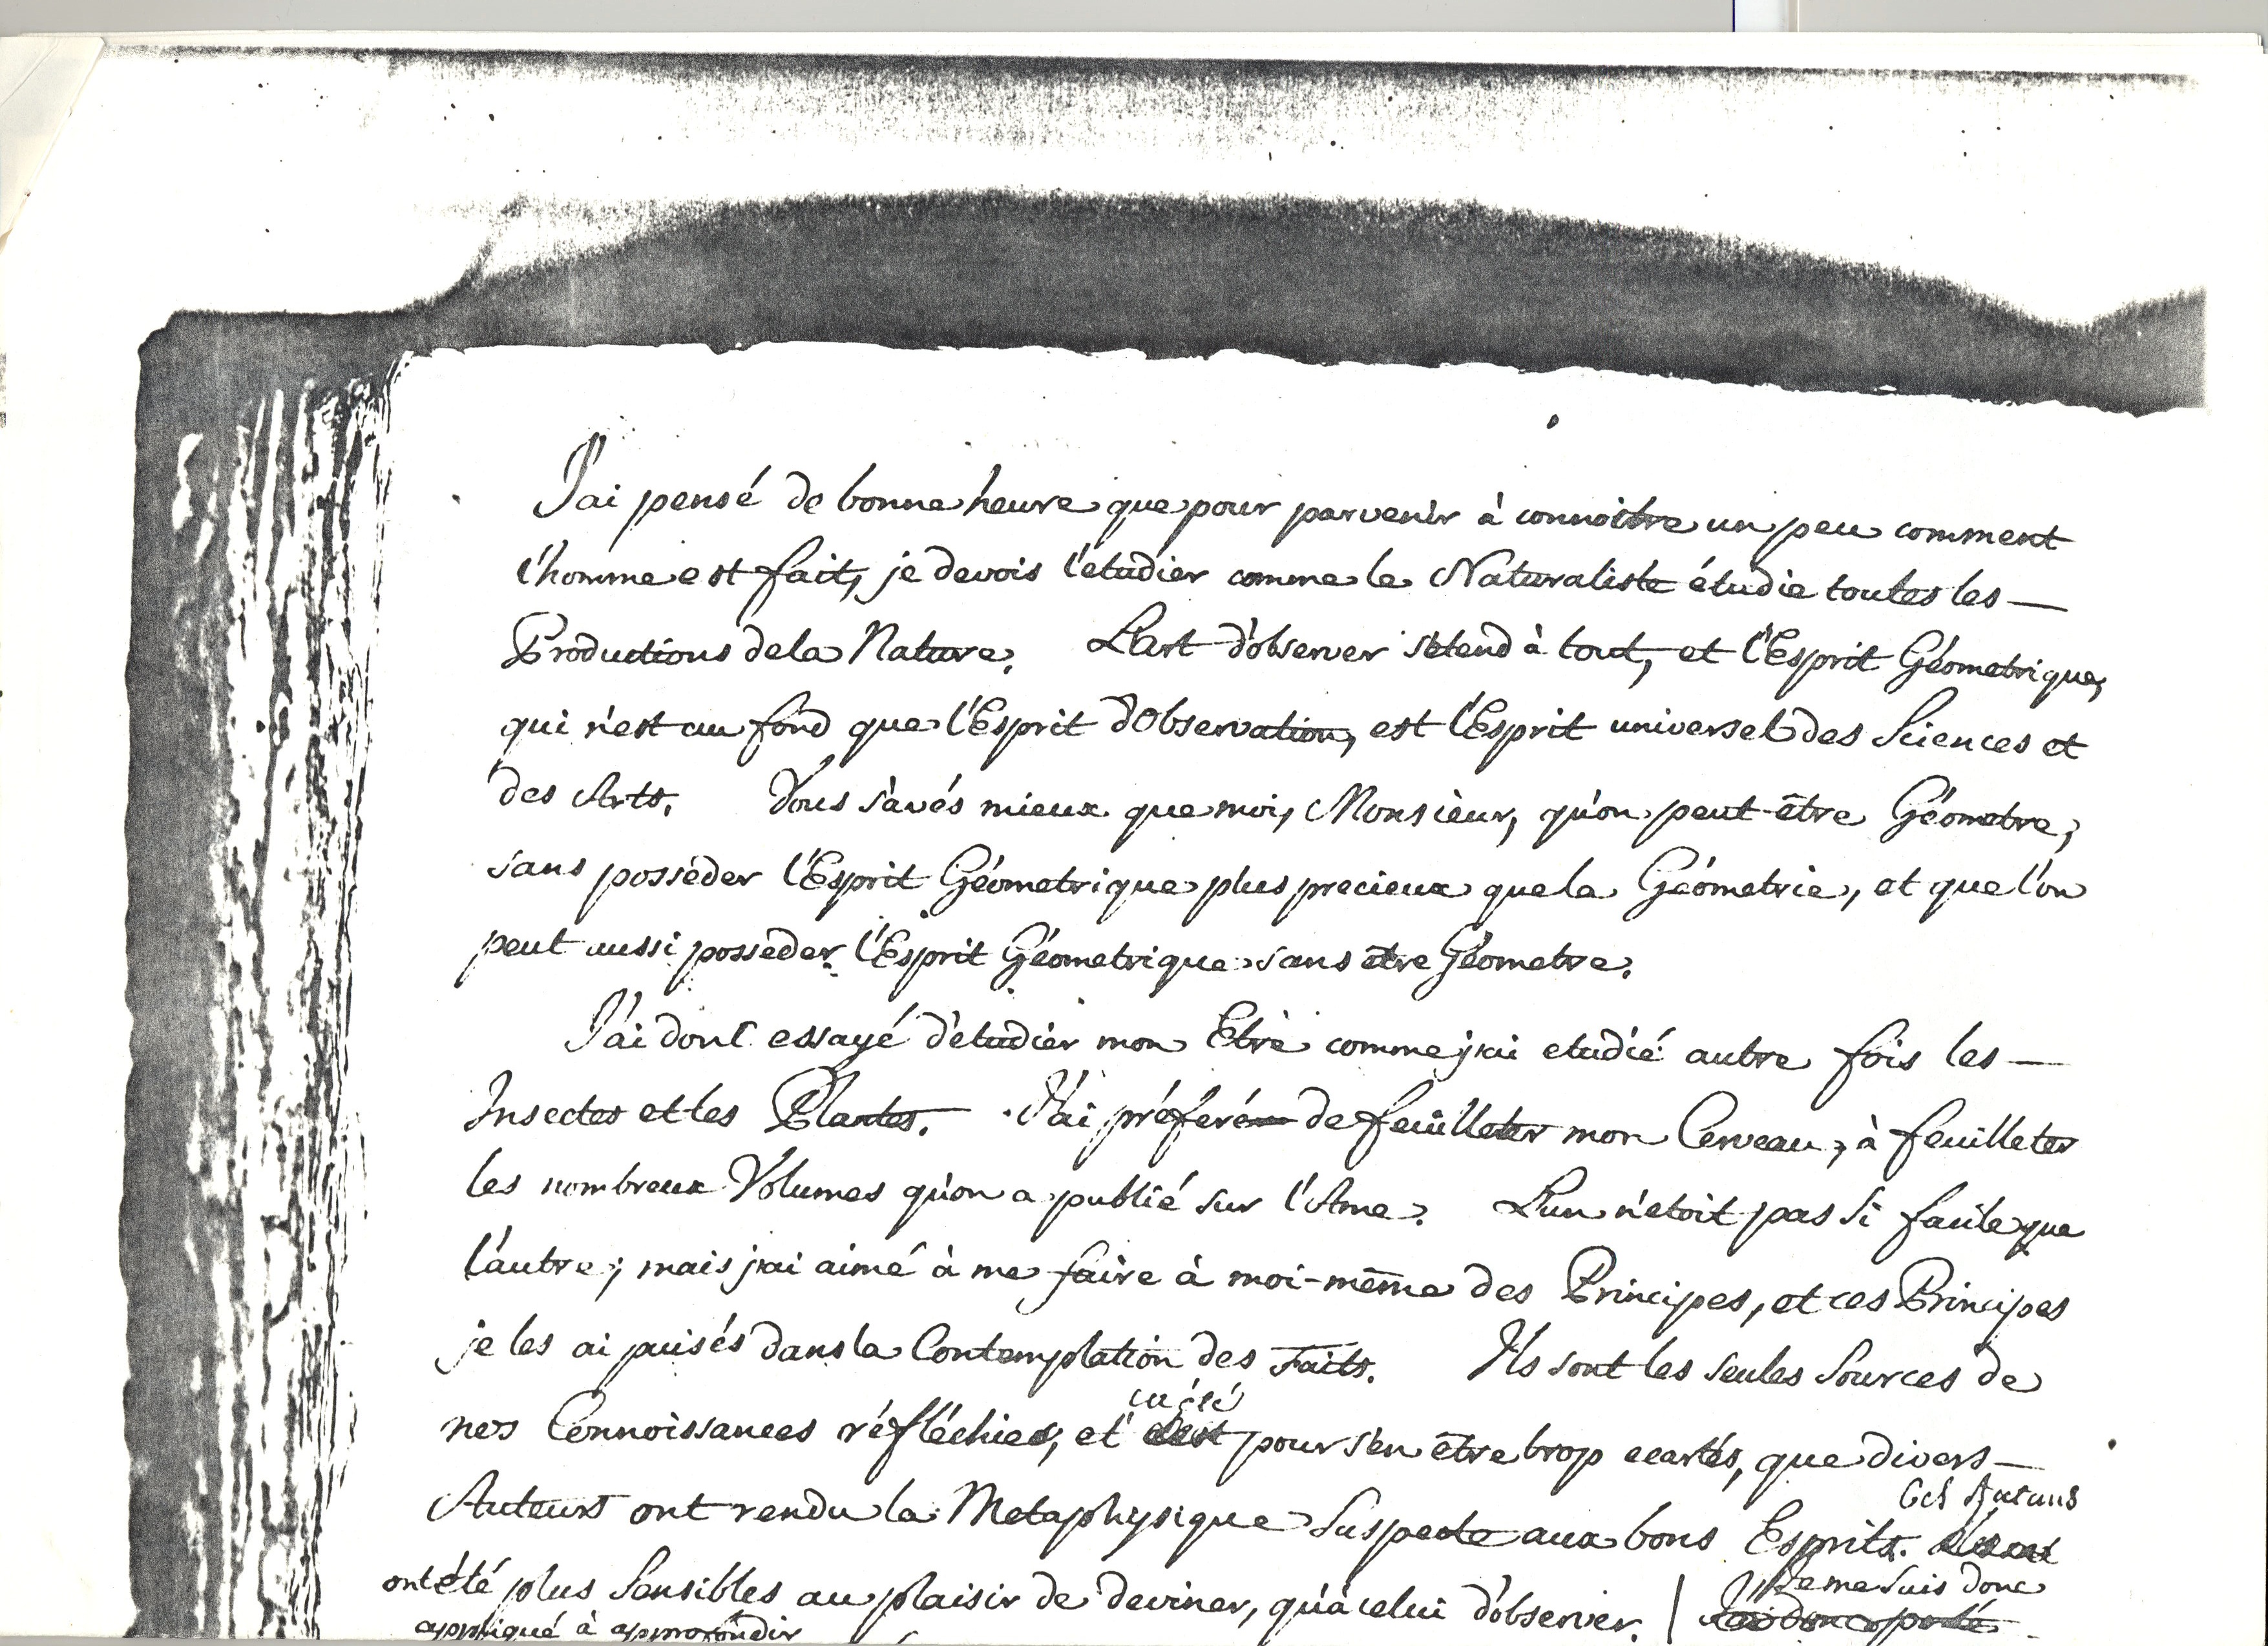 J'ai pensé de bonne heure que pour parvenir à connoître un peu comment
l'homme est fait, je devois l'etudier comme le Naturaliste étudie toutes les —
Productions de la Nature. L'art d'observer s'étend à tout, et l'Esprit Géometrique,
qui n'est au fond que l'Esprit d'Observation, est l'Esprit universel des Sciences et
des Arts. Vous s'avés mieux que moi, Monsieur, qu'on peut-être Géometre,
sans posséder l'Esprit Géometrique plus precieux que la Géometrie, et que l'on
peut aussi posséder l'Esprit Géometrique sans être Géometre.
J'ai donc essayé d'etudier mon Etre comme j'ai etudié autre fois les —
Insectes et les Plantes. J'ai préferé de feuilleter mon Cerveau, à feuilleter
les nombreux Volumes qu'on a publié sur l'Ame. L'un n'etoit pas si facile que
l'autre; mais j'ai aimé à me faire à moi-même des Principes, et ces Principes
je les ai puisés dans la Contemplation des Faits. Ils sont les seules Sources de
ç'a été
nos Connoissances réfléchies, et c'est pour s'en être trop ecartés, que divers —
Ces Auteurs
Auteurs ont rendu la Metaphysique Suspecte aux bons Esprits.
Je me suis donc
ont été plus Sensibles au plaisir de deviner, qu'à celui d'observer. |
appliqué à approfondir